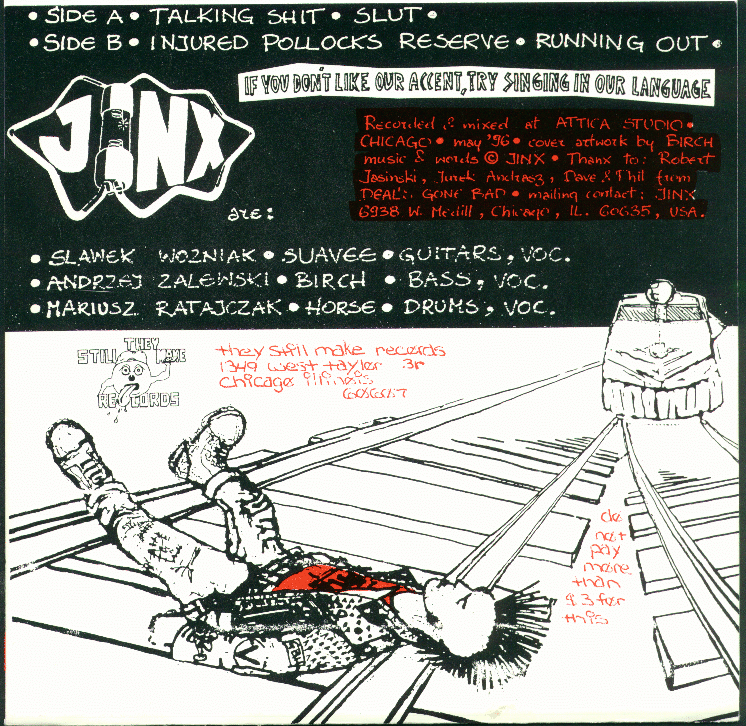 • SIDE A • TALKING SHIT • SLUT •
• SIDE B • INJURED POLLOCKS RESERVE • RUNNING OUT •
IF YOU DON'T LIKE OUR ACCENT, TRY SINGING IN OUR LANGUAGE
JINX
are:
Recorded & mixed at ATTICA STUDIO •
CHICAGO • may '96 • cover artwork by BIRCH
music & words © JINX • Thanx to: Robert
Jasinski, Jurek Andrasz, Dave & Phil from
DEAL'S GONE BAD • mailing contact: JINX
6938 W. Medill, Chicago, IL. 60635, USA.
• SLAWEK WOZNIAK • SUAVEE • GUITARS, VOC.
• ANDRZEJ ZALEWSKI • BIRCH • BASS, VOC.
• MARIUSZ RATAJCZAK • HORSE • DRUMS, VOC.
THEY
STILL MAKE
RECORDS
they still make records
1349 west taylor 3r
chicago illinois
60607
do
not
pay
more
than
$3 for
this